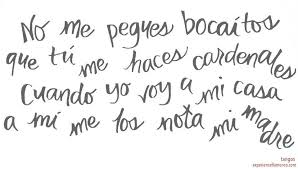 No me pegues bocaítos
que tú me haces cardenales
Cuando yo voy a mi casa
a mi me los nota mi madre
tangos
experienceflamenco.com